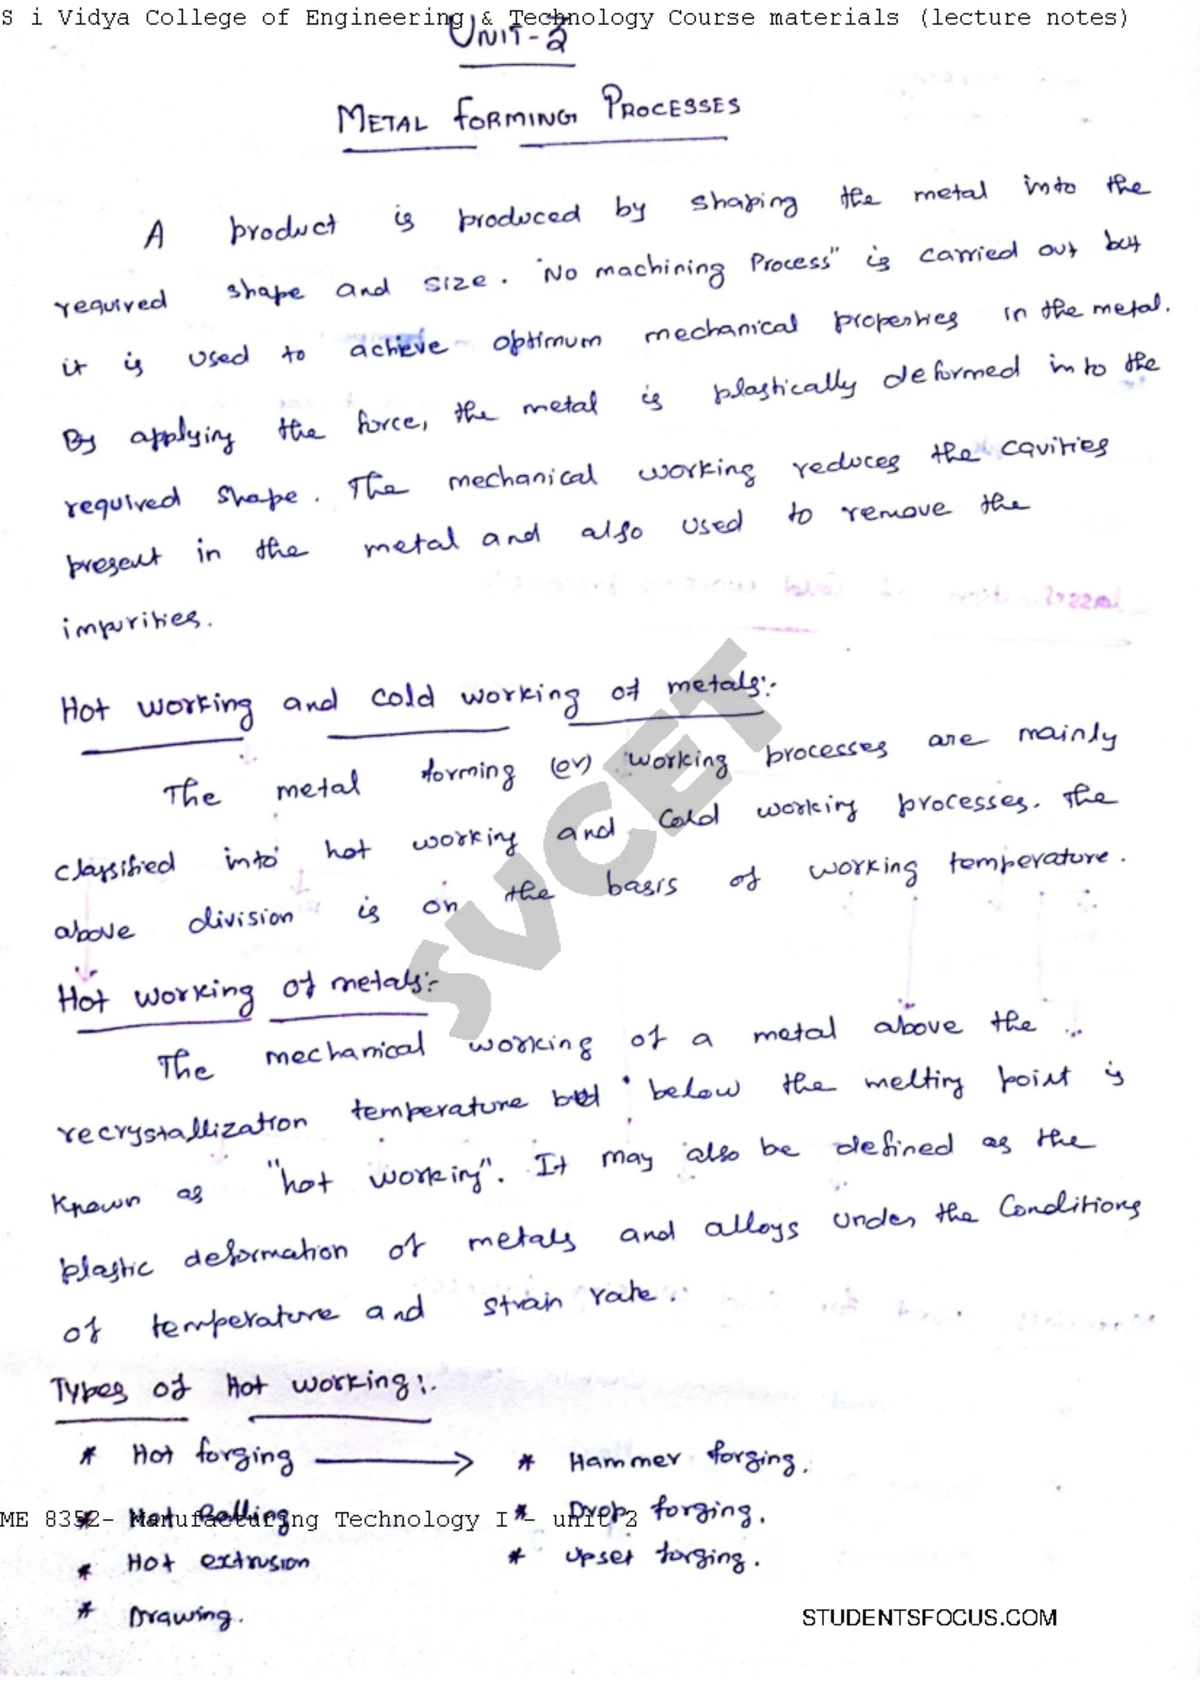 S i Vidya College of Engineering & Technology Course materials (lecture notes)
UNIT-3
METAL FORMING PROCESSES
A product is produced by shaping the metal into the
required shape and size. "No machining Process" is carried out but
it is used to achieve optimum mechanical properties in the metal.
By applying the force, the metal is plastically deformed into the
required shape. The mechanical working reduces the cavities
present in the metal and also used to remove the
impurities.
Hot working and cold working of metals:-
The metal forming (or) working processes are mainly
classified into hot working and cold working processes. The
above division is on the basis of working temperature.
Hot working of metals:-
The mechanical working of a metal above the
recrystallization temperature but below the melting point is
known as "hot working". It may also be defined as the
plastic deformation of metals and alloys under the conditions
of temperature and strain rate.
Types of Hot working:-
* Hot forging → * Hammer forging.
* Hot Rolling * Drop forging.
ME 8352- Manufacturing Technology I - unit 3
* Hot extrusion * Upset forging.
* Drawing.
STUDENTSFOCUS.COM
SVCET